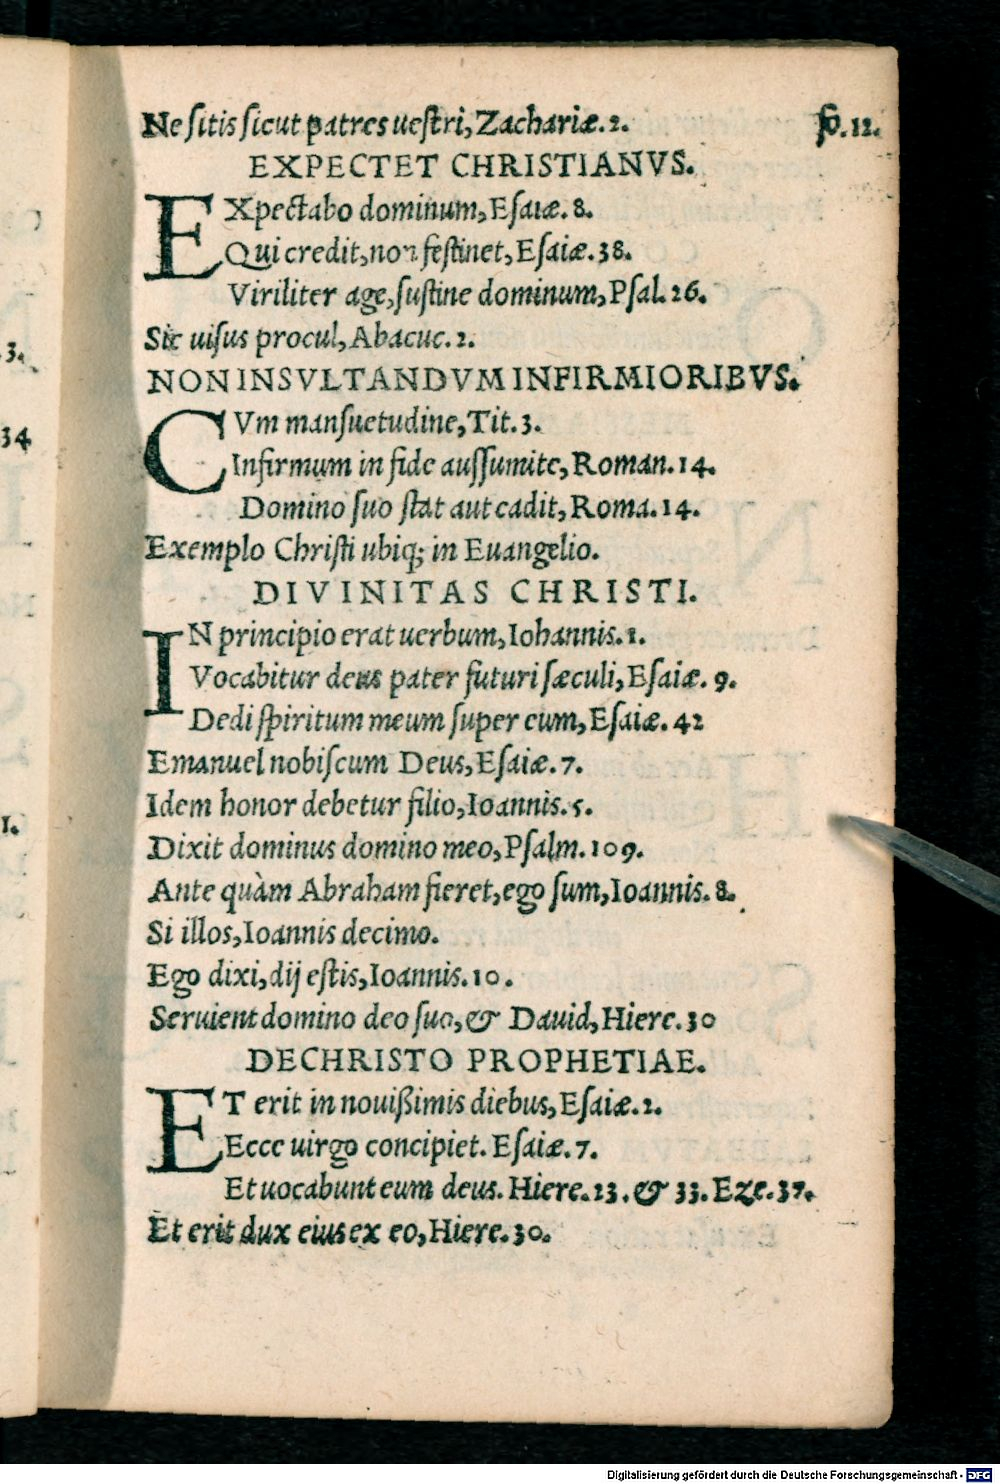 Ne sitis sicut patres uestri, Zachariæ. 2. fo. 12.
EXPECTET CHRISTIANVS.
EXpectabo dominum, Esaiæ. 8.
Qui credit, non festinet, Esaiæ. 38.
Viriliter age, sustine dominum, Psal. 26.
Sit uisus procul, Abacuc. 2.
NON INSVLTANDVM INFIRMIORIBVS.
CVm mansuetudine, Tit. 3.
Infirmum in fide aussumite, Roman. 14.
Domino suo stat aut cadit, Roma. 14.
Exemplo Christi ubiq; in Euangelio.
DIVINITAS CHRISTI.
IN principio erat uerbum, Iohannis. 1.
Vocabitur deus pater futuri sæculi, Esaiæ. 9.
Dedi spiritum meum super eum, Esaiæ. 42
Emanuel nobiscum Deus, Esaiæ. 7.
Idem honor debetur filio, Ioannis. 5.
Dixit dominus domino meo, Psalm. 109.
Ante quàm Abraham fieret, ego sum, Ioannis. 8.
Si illos, Ioannis decimo.
Ego dixi, dij estis, Ioannis. 10.
Seruient domino deo suo, & Dauid, Hiere. 30
DE CHRISTO PROPHETIAE.
ET erit in nouißimis diebus, Esaiæ. 2.
Ecce uirgo concipiet. Esaiæ. 7.
Et uocabunt eum deus. Hiere. 23. & 33. Eze. 37.
Et erit dux eius ex eo, Hiere. 30.
3.
34
1.
Digitalisierung gefördert durch die Deutsche Forschungsgemeinschaft - DFG